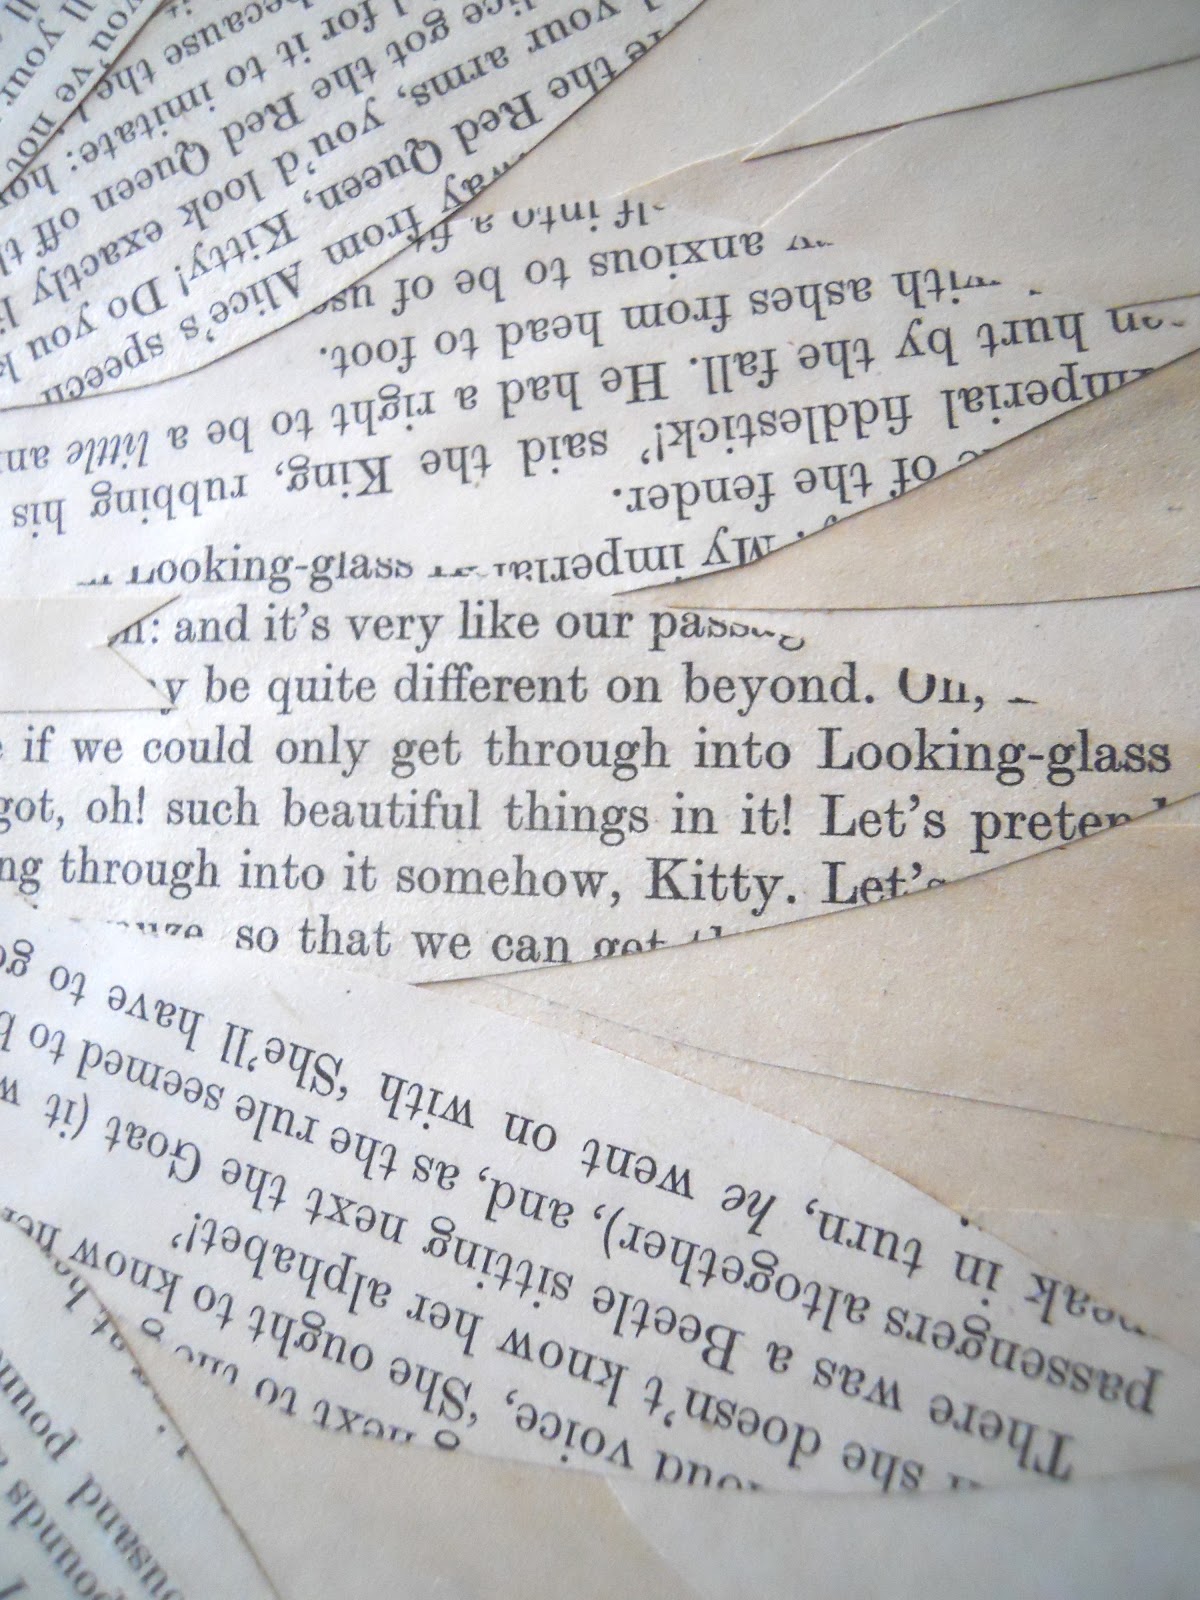 Alice's speech
the Red Queen, Kitty! Do you k
your arms, you'd look exactly li
got the Red Queen off th
for it to imitate: ho
because the
you've not
your
My imperial
of the fender.
Imperial fiddlestick!' said the King, rubbing his
hurt by the fall. He had a right to be a little an
with ashes from head to foot.
anxious to be of use
into a fit from
Looking-glass
and it's very like our
be quite different on beyond. Oh,
if we could only get through into Looking-glass
got, oh! such beautiful things in it! Let's preten
ng through into it somehow, Kitty. Let's
so that we can get
next to the
loud voice, 'She ought to know her
she doesn't know her alphabet!'
There was a Beetle sitting next the Goat (it w
passengers altogether), and, as the rule seemed to b
in turn, he went on with 'She'll have to go
pounds
ousand pound